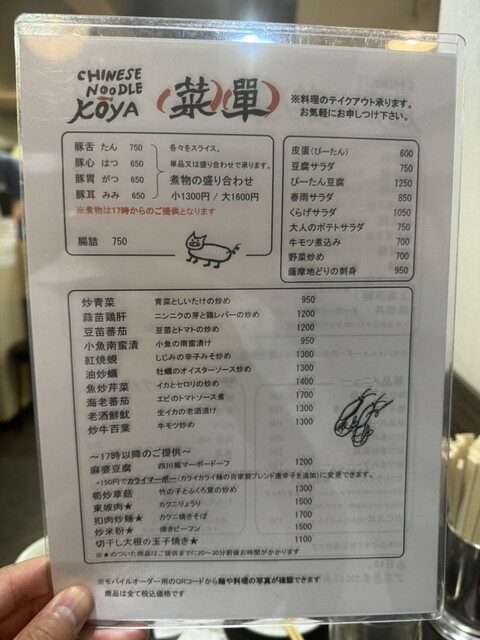 CHINESE
NOODLE
KOYA
菜單
※料理のテイクアウト承ります。
お気軽にお申しつけ下さい。
豚舌 たん 750
豚心 はつ 650
豚胃 がつ 650
豚耳 みみ 650
各々をスライス。
単品又は盛り合わせで承ります。
煮物の盛り合わせ
小1300円 / 大1600円
※煮物は17時からのご提供となります
腸詰 750
皮蛋(ぴーたん) 600
豆腐サラダ 750
ぴーたん豆腐 1250
春雨サラダ 850
くらげサラダ 1050
大人のポテトサラダ 750
牛モツ煮込み 700
野菜炒め 700
薩摩地どりの刺身 950
炒青菜 青菜としいたけの炒め 950
蒜苗鶏肝 ニンニクの芽と鶏レバーの炒め 1200
豆苗蕃茄 豆苗とトマトの炒め 1200
小魚南蛮漬 小魚の南蛮漬け 950
紅焼蜆 しじみの辛子みそ炒め 1300
油炒蠣 牡蠣のオイスターソース炒め 1300
魚炒芹菜 イカとセロリの炒め 1400
海老蕃茄 エビのトマトソース煮 1700
老酒鮮魷 生イカの老酒漬け 1300
炒牛百葉 牛モツ炒め 1300
〜17時以降のご提供〜
麻婆豆腐 四川風マーボードーフ 1200
+150円でカライマーボー(カライカライ麺の自家製ブレンド唐辛子を追加)に変更できます。
筍炒草菇 竹の子とふくろ茸の炒め 1300
東坡肉★ カクニりょうり 1500
扣肉炒麺★ カクニ焼きそば 1700
炒米粉★ 焼きビーフン 1500
切干し大根の玉子焼き★ 1100
※★のついた商品はご提供までに20〜30分前後お時間がかかります。
※モバイルオーダー用のQRコードから麺や料理の写真が確認できます
商品は全て税込価格です